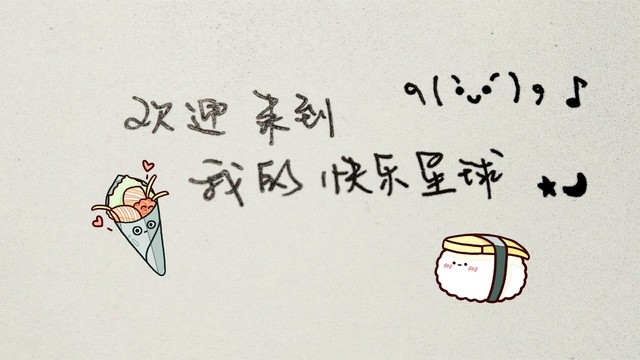 欢迎来到
٩(ˊᵕˋ)۶♪
我的快乐星球
★🌙